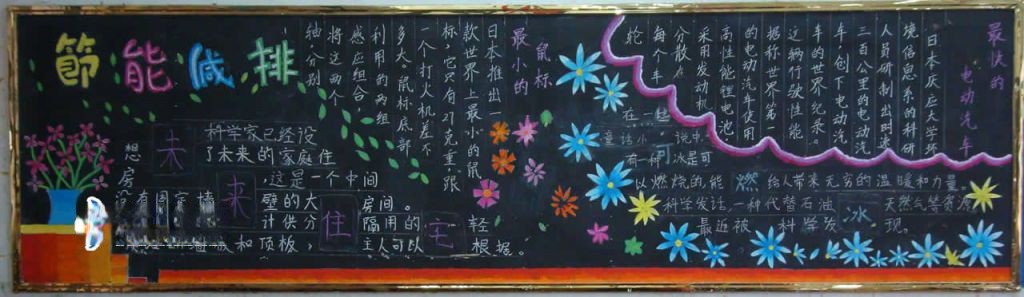 節能减排
未来住宅
科学家已经设想
了未来的家庭住房
,这是一个中间
没有固定墙壁的大房间。
计供分隔用的轻
和顶板,主人可以根据。
最小的鼠标
日本推出一
款世界最小的鼠
标,它只有27克重,跟
一个打火机差不
多大,鼠标底部
利用的两组
感应组合,
将这两个
轴,分别
最快的电动汽车
日本庆应大学环
境信息系的科研
人员研制出时速
三百公里的电动汽
车,创下电动汽
车的世界纪录。
这辆行驶性能
据称世界第一
的电动汽车使用
高性能锂电池
采用发动机
分散
每个车
轮
可燃冰
在一些
童话小说中
有一种冰是可
以燃烧的,能给人带来无穷的温暖和力量。
科学发话,一种代替石油、天然气等资源
最近被科学发现。